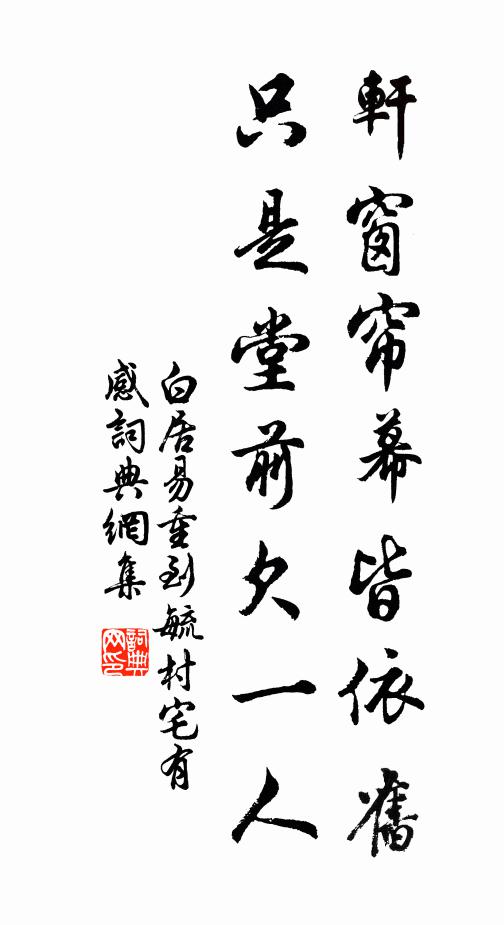 軒窗帘幕皆依舊
只是堂前欠一人
白居易重到毓村宅有
感詞典網集
詞典
网印